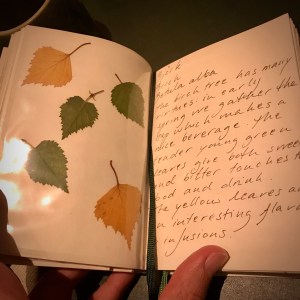 Birch
Betula alba
The birch tree has many
virtues: in early
spring we gather the
which makes a
nice beverage. The
tender young green
leaves give both sweet
and bitter touches to
food and drink.
The yellow leaves are
a interesting flavor
infusions.